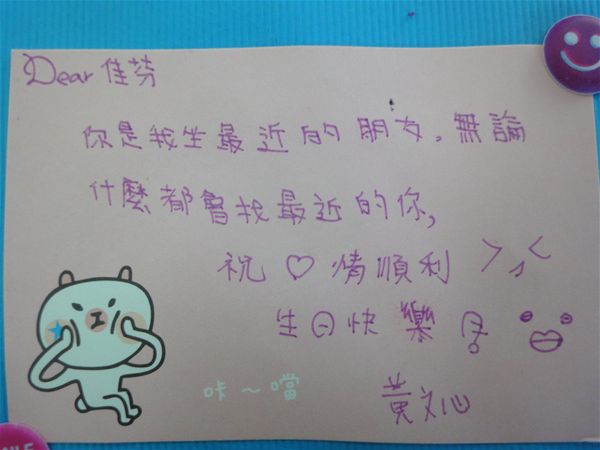 Dear 佳芬
你是我坐最近的朋友,無論
什麼都會找最近的你,
祝♡情順利
生日快樂
咔～噹
黃文心